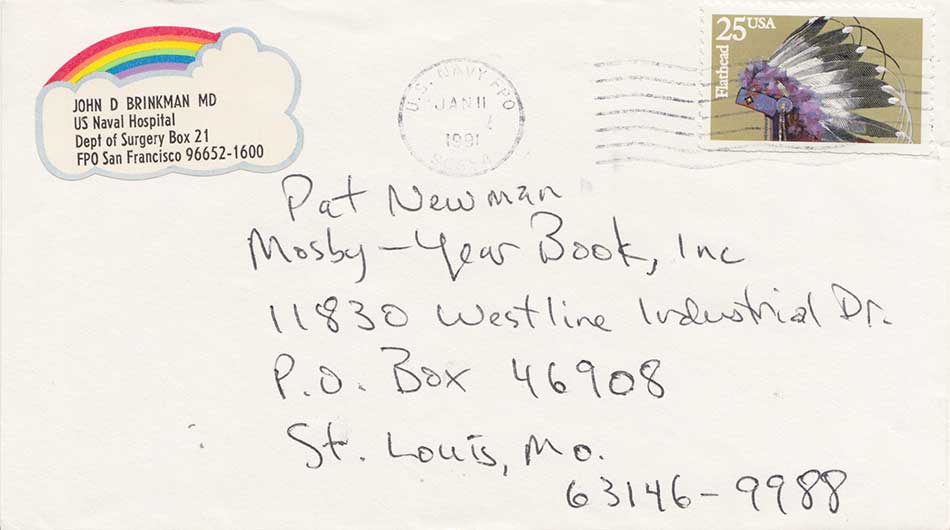 JOHN D BRINKMAN MD
US Naval Hospital
Dept of Surgery Box 21
FPO San Francisco 96652-1600
U.S. NAVY FPO
JAN 11
1991
25 USA
Flathead
Pat Newman
Mosby-Year Book, Inc
11830 Westline Industrial Dr.
P.O. Box 46908
St. Louis, Mo.
63146-9988